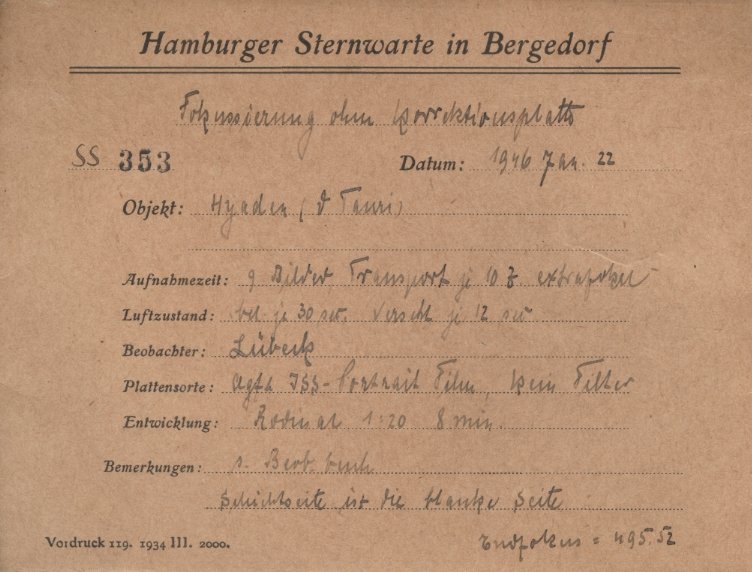 Hamburger Sternwarte in Bergedorf
Fokussierung ohne Korrektionsplatte
SS 353 Datum: 1946 Jan. 22
Objekt: Hyaden (ϑ Tauri)
Aufnahmezeit: 9 Bilder Transport je 10 extrafokal
Luftzustand: bel je 30 sec. Versicht je 12 sec
Beobachter: Lübeck
Plattensorte: Agfa ISS-Portrait Film, kein Filter
Entwicklung: Rodinal 1:20 8 min.
Bemerkungen: s. Beob. buch
Schichtseite ist die blanke Seite
Vordruck 119. 1934 III. 2000. Endfokus = 495.52